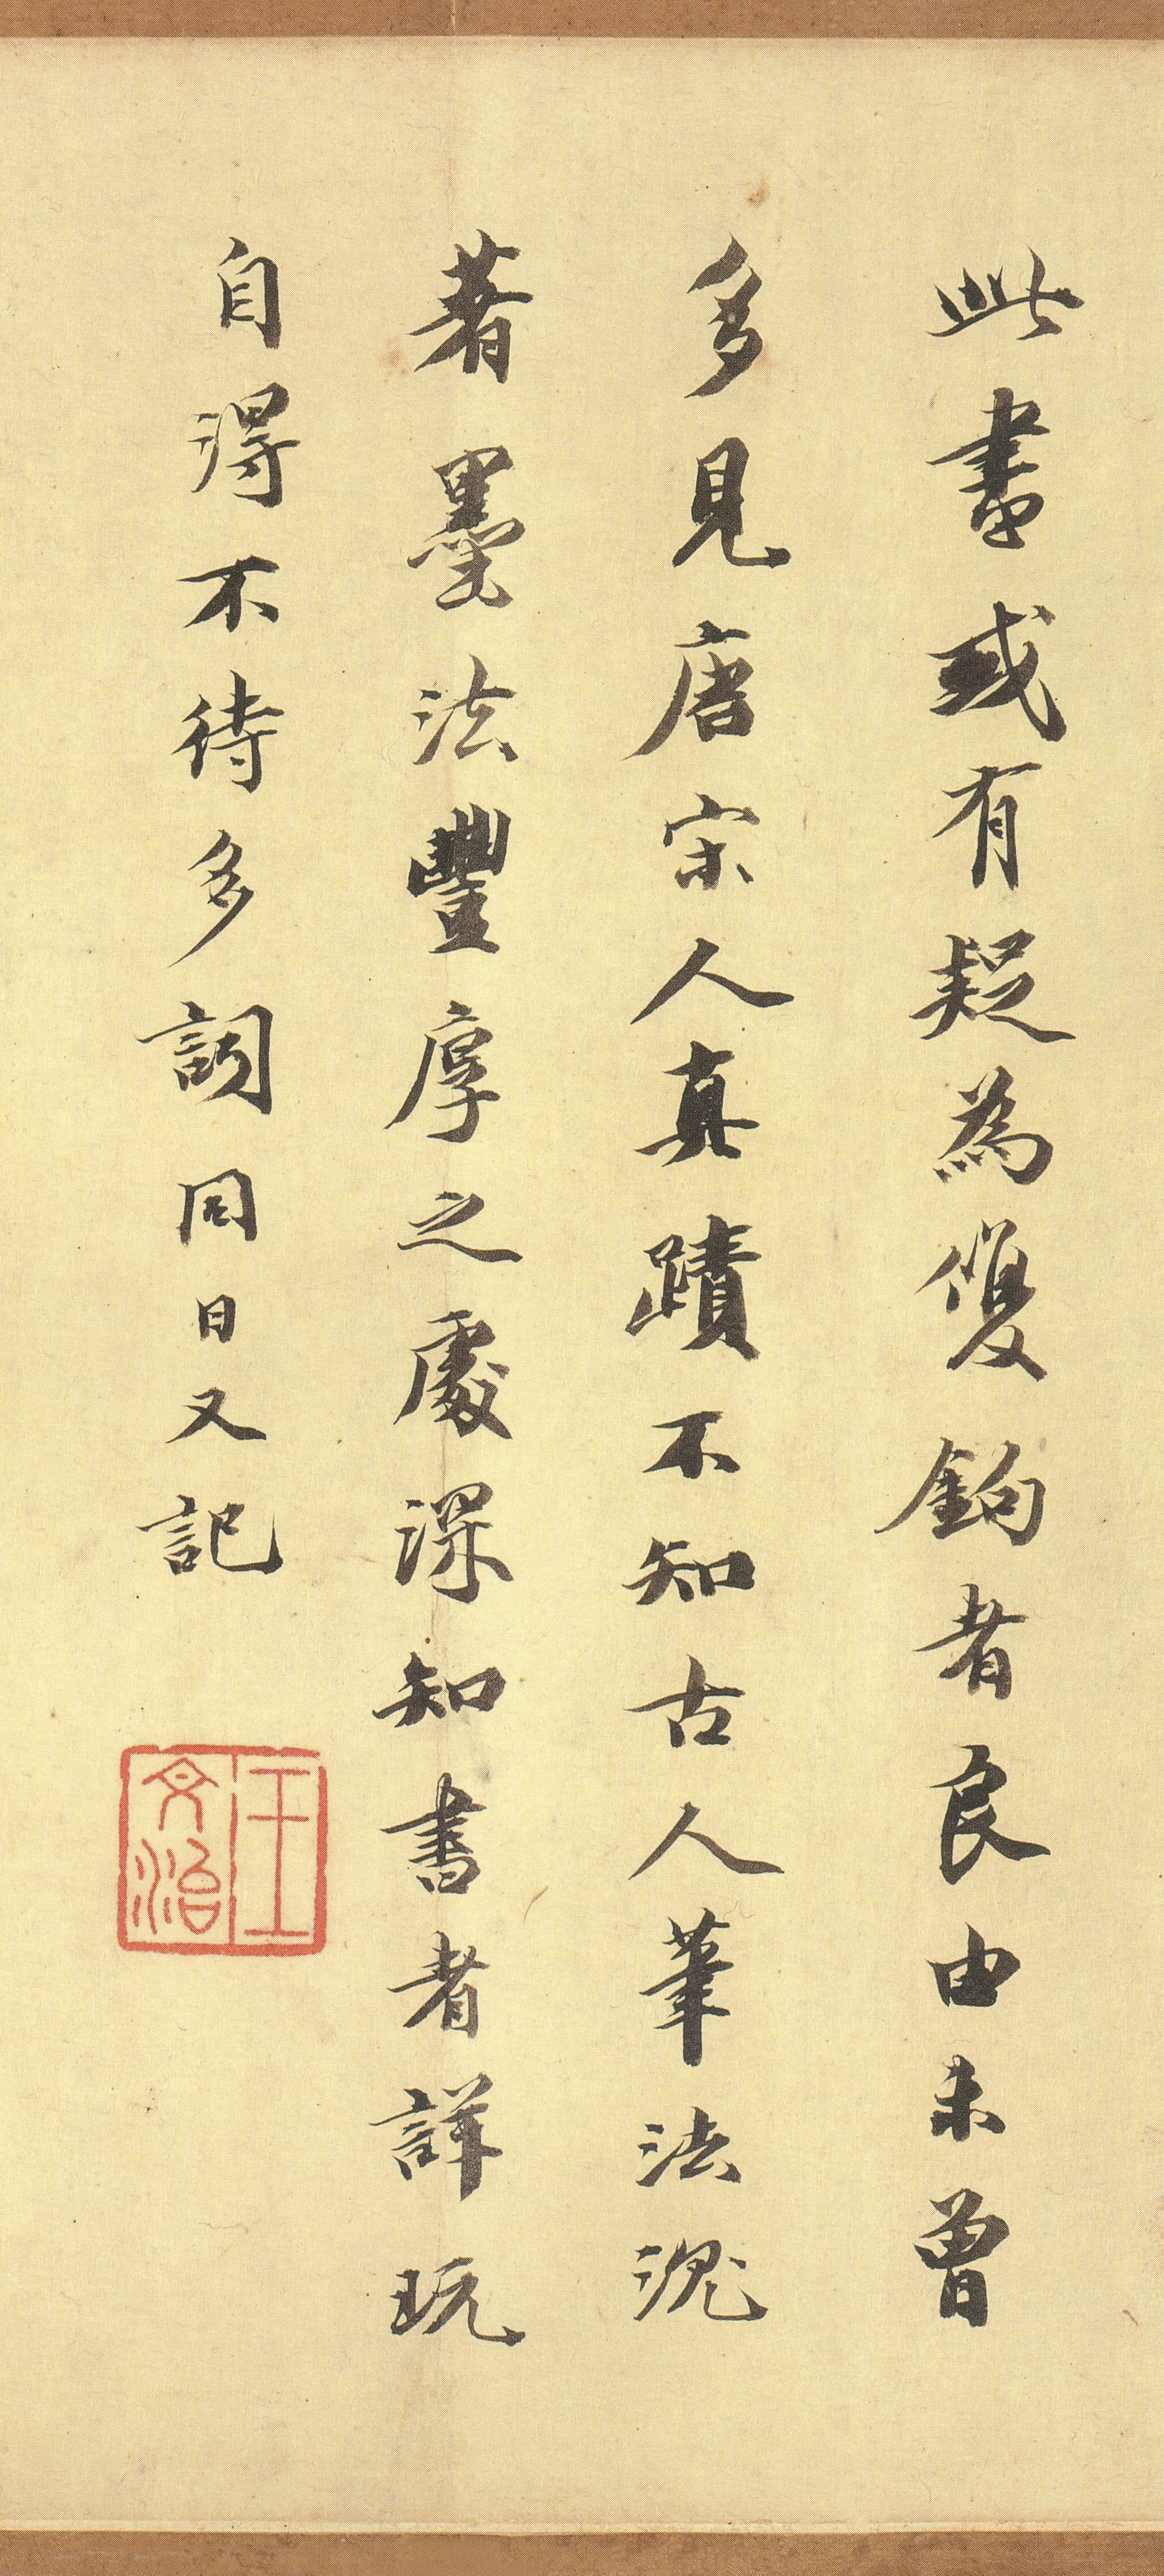 此書或有疑為雙鉤者良由未曾
多見唐宋人真蹟不知古人筆法況
著墨法豐厚之處深知書者詳玩
自得不待多詞同日又記
王文治